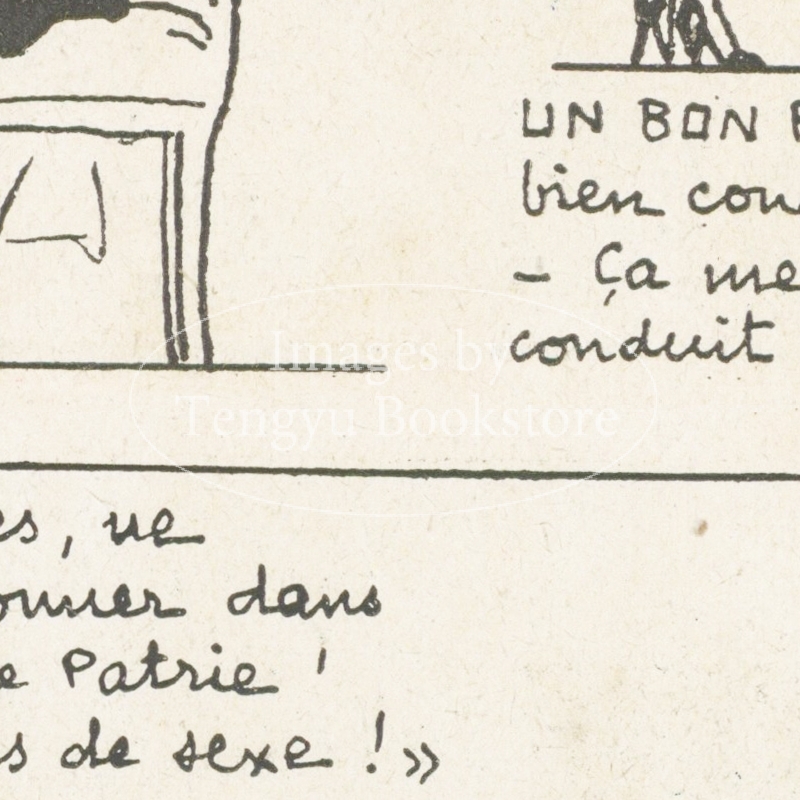 UN BON
bien
- Ça me
conduit
Images by
Tengyu Bookstore
es, ne
dans
Patrie !
s de sexe ! »